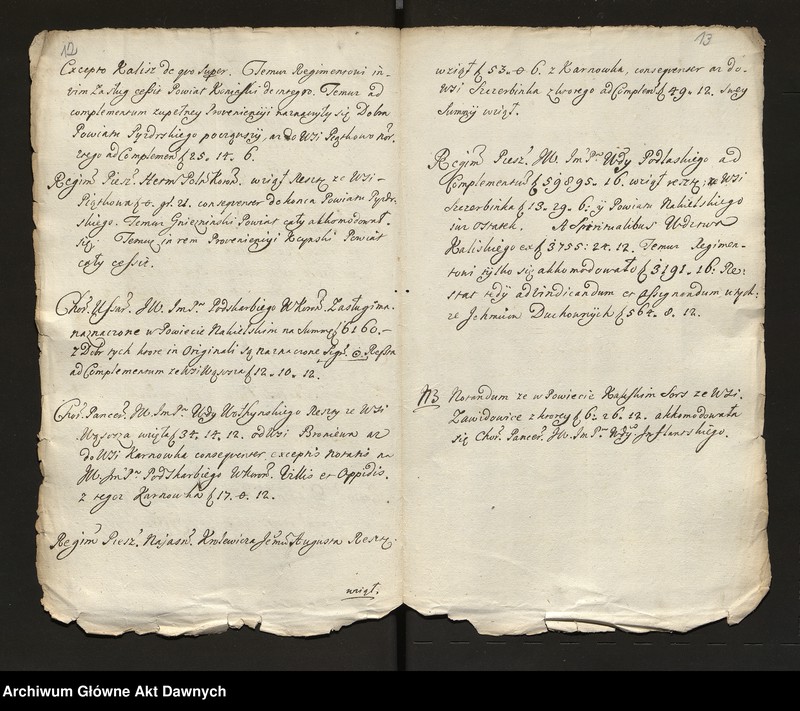 12
Excepto Kalisz de quo super. Temuż Regimentowi in
vim Zasług cessit Powiat Koniński de integro. Temuż ad
complementum zupełney Proveniencyi naznaczyły się Dobra
Powiatu Pyzdrskiego począwszy, aż do Wsi Piątkowo
ad Complemen f 25. 14. 6.
Regim Piesz. Hetm Poln Koron. wziął Resztę ze Wsi
Piątkowa f 0. gr. 21. consequenter do końca Powiatu Pyzdr-
skiego. Temuż Gnieznński Powiat cały akkomodował
się. Temuż in rem Proveniencyi Powiat
cały cessit.
Chor. Ussar. JW. ImPa Podskarbiego WKoron. Zasługi ma
naznaczone w Powiecie Nakielskim na Summę f 6160.-
z Dobr tych ktore in Originali są naznaczone Sign. Θ. Resztę
ad Complementum ze Wsi Wąsosza f 12. 10. 12.
Chor. Pancer. JW. ImPa Wdy Wołhynskiego Resztę ze Wsi
Wąsosza wzięła f 34. 14. 12. od Wsi Broniewa aż
do Wsi Karnowka consequenter exceptis notatis na
JW. ImPa Podskarbiego WKoron. Villis et Oppidis.
z tegoż Karnowka f 17. 0. 12.
Regim Piesz. Najasn. Krolewicza Jemci Augusta Resztę
wziął.
13
wziął f 53. 0 6. z Karnowka, consequenter aż do
Wsi Szczerbinka z ktorego ad Complem f 49. 12. swey
Summy wziął.
Regim Piesz. JW. ImPa Wdy Podlaskiego ad
Complementum f 59895. 16. wziął resztę ze Wsi
Szczerbinka f 13. 29. 6. y Powiatu Nakielskiego
iuż ostatek. A Spiritualibus Wdztwa
Kaliskiego ex f 3755: 24. 12. Temuż Regimen-
towi tylko się akkomodowało f 3191. 16. Re-
stat tedy ad vindicandum et assignandum u tych-
że Ichmciow Duchownych f 564. 8. 12.
NB Notandum że w Powiecie Kaliskim Sors ze Wsi
Zawidowice z ktorey f 6. 26. 12. akkomodowała
się Chor. Pancer. JW. ImPa Wdy Inflantskiego.
Archiwum Główne Akt Dawnych